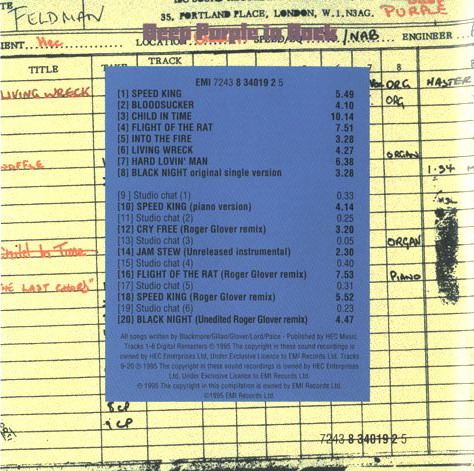 FELDMAN
35, PORTLAND PLACE, LONDON, W.1. N3AG.
PURPLE
Deep Purple In Rock
IENT. Hec
LOCATION
/NAB.
ENGINEER
TITLE
TRACK
7
8
LIVING WRECK
ORG
MASTER
ORG
ORGAN
1.34
ORGAN
Child In Time
PIANO
HE LAST CHORD"
EMI 7243 8 34019 2 5
[1] SPEED KING 5.49
[2] BLOODSUCKER 4.10
[3] CHILD IN TIME 10.14
[4] FLIGHT OF THE RAT 7.51
[5] INTO THE FIRE 3.28
[6] LIVING WRECK 4.27
[7] HARD LOVIN' MAN 6.38
[8] BLACK NIGHT original single version 3.28
[9 ] Studio chat (1) 0.33
[10] SPEED KING (piano version) 4.14
[11] Studio chat (2) 0.25
[12] CRY FREE (Roger Glover remix) 3.20
[13] Studio chat (3) 0.05
[14] JAM STEW (Unreleased instrumental) 2.30
[15] Studio chat (4) 0.40
[16] FLIGHT OF THE RAT (Roger Glover remix) 7.53
[17] Studio chat (5) 0.31
[18] SPEED KING (Roger Glover remix) 5.52
[19] Studio chat (6) 0.23
[20] BLACK NIGHT (Unedited Roger Glover remix) 4.47
All songs written by Blackmore/Gillan/Glover/Lord/Paice - Published by HEC Music.
Tracks 1-8 Digital Remasters © 1995 The copyright in these sound recordings is
owned by HEC Enterprises Ltd. Under Exclusive Licence to EMI Records Ltd. Tracks
9-20 ℗ 1995 The copyright in these sound recordings is owned by HEC Enterprises
Ltd. Under Exclusive Licence to EMI Records Ltd.
℗ 1995 The copyright in this compilation is owned by EMI Records Ltd.
©1995 EMI Records Ltd.
7243 8 34019 2 5